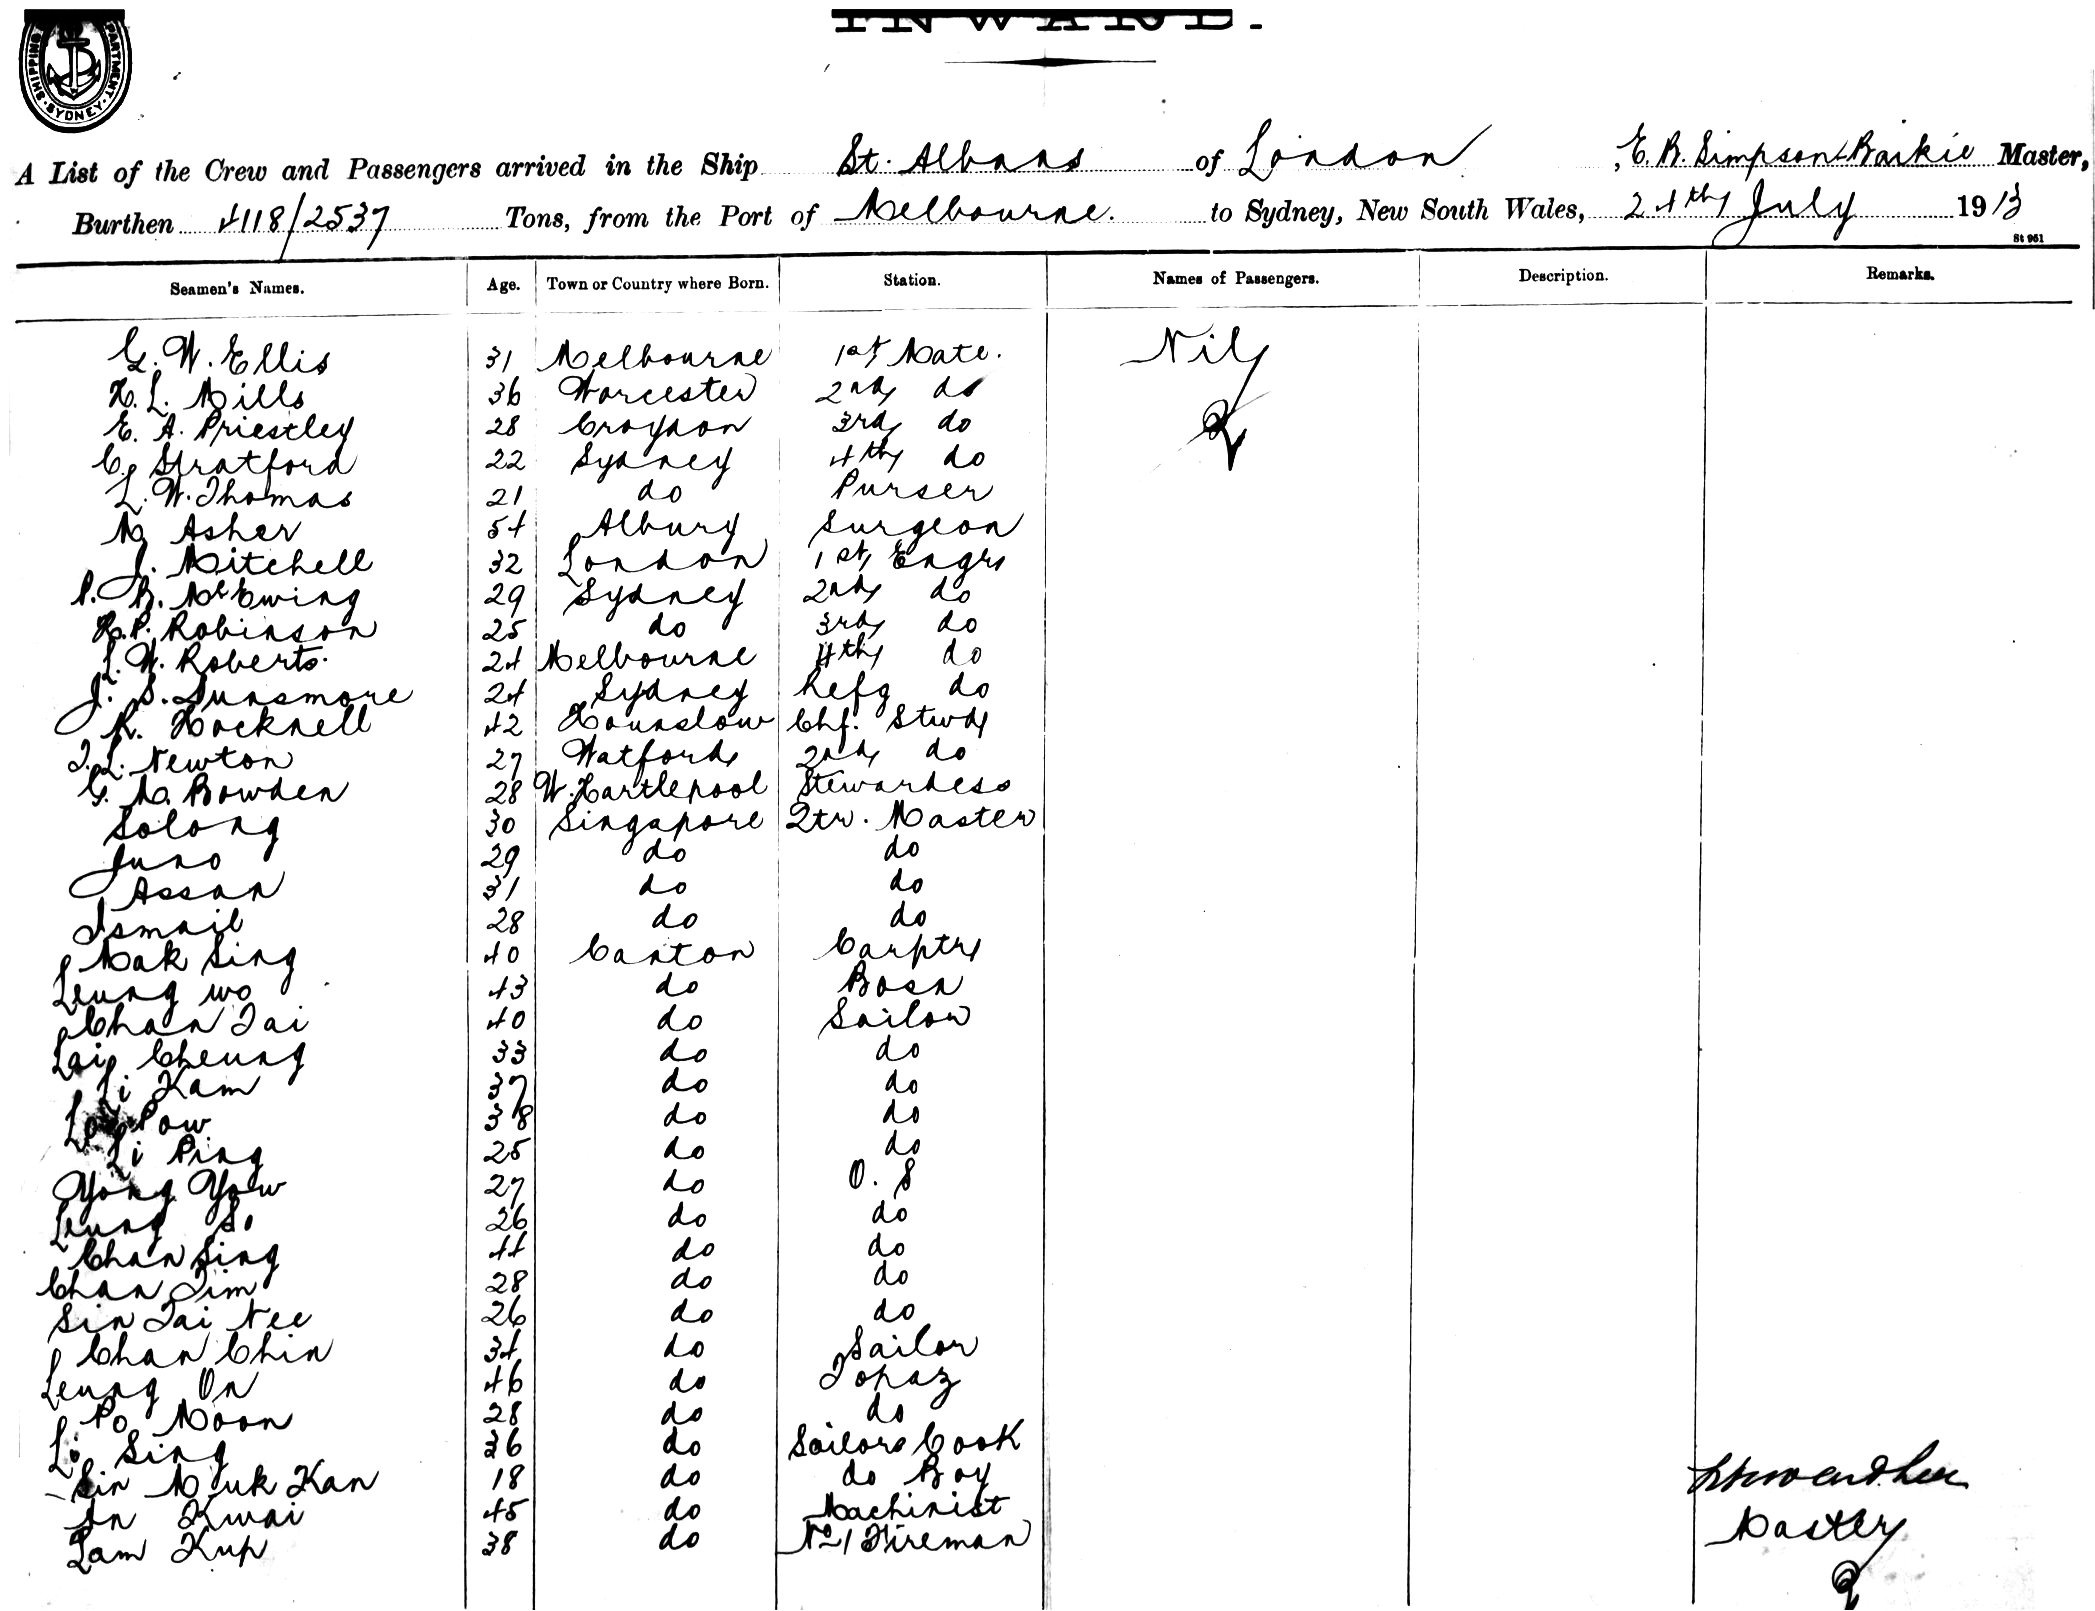 SHIPPING DEPARTMENT. SYDNEY
INWARD.
A List of the Crew and Passengers arrived in the Ship St. Albans of London, E. B. Simpson-Baikie Master,
Burthen 4118/2537 Tons, from the Port of Melbourne. to Sydney, New South Wales, 24th July 1913
St 961
Seamen's Names. Age. Town or Country where Born. Station. Names of Passengers. Description. Remarks.
G. W. Ellis 31 Melbourne 1st Mate. Nil
H. L. Mills 36 Worcester 2nd do
E. A. Priestley 28 Croydon 3rd do
C. Stratford 22 Sydney 4th do
L. W. Thomas 21 do Purser
M Asher 54 Albury Surgeon
J. Mitchell 32 London 1st Engr
P. B. McEwing 29 Sydney 2nd do
H. P. Robinson 25 do 3rd do
L. W. Roberts. 24 Melbourne 4th do
J. S. Dunsmore 24 Sydney Refg do
K. Hocknell 42 Hounslow Chf. Stwd
T. L. Newton 27 Watford 2nd do
G. M. Bowden 28 W. Hartlepool Stewardess
Solong 30 Singapore Qtr. Master
Juno 29 do do
Assan 31 do do
Ismail 28 do do
Mak Sing 40 Canton Carptr
Leung Wo 43 do Bosn
Chan Tai 40 do Sailor
Lai Cheung 33 do do
Li Kam 37 do do
Pow 38 do do
Li Ping 25 do do
Yong Yow 27 do O. S
Leung So 26 do do
Chan Sing 44 do do
Chan Tim 28 do do
Sin Tai Nee 26 do do
Chan Chin 34 do Sailor
Leung On 46 do Topaz
Po Moon 28 do do
Li Sing 36 do Sailors Cook
Sin Muk Kan 18 do do Boy
An Kwai 45 do Machinist
Lam Kup 38 do No 1 Fireman
Master